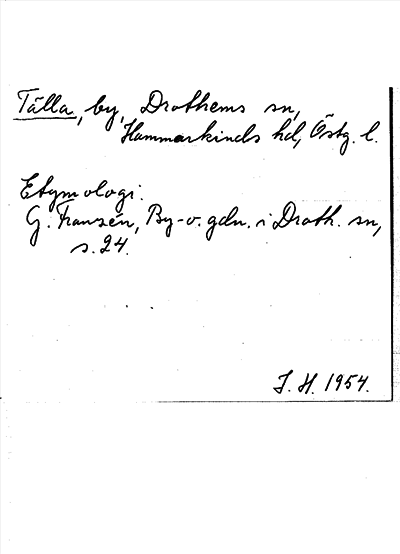 Tälla, by, Drothems sn,
Hammarkinds hd, Östg. l.
Etymologi:
G. Franzén, By-o. gdn. i Droth. sn,
s. 24.
I. H. 1954.